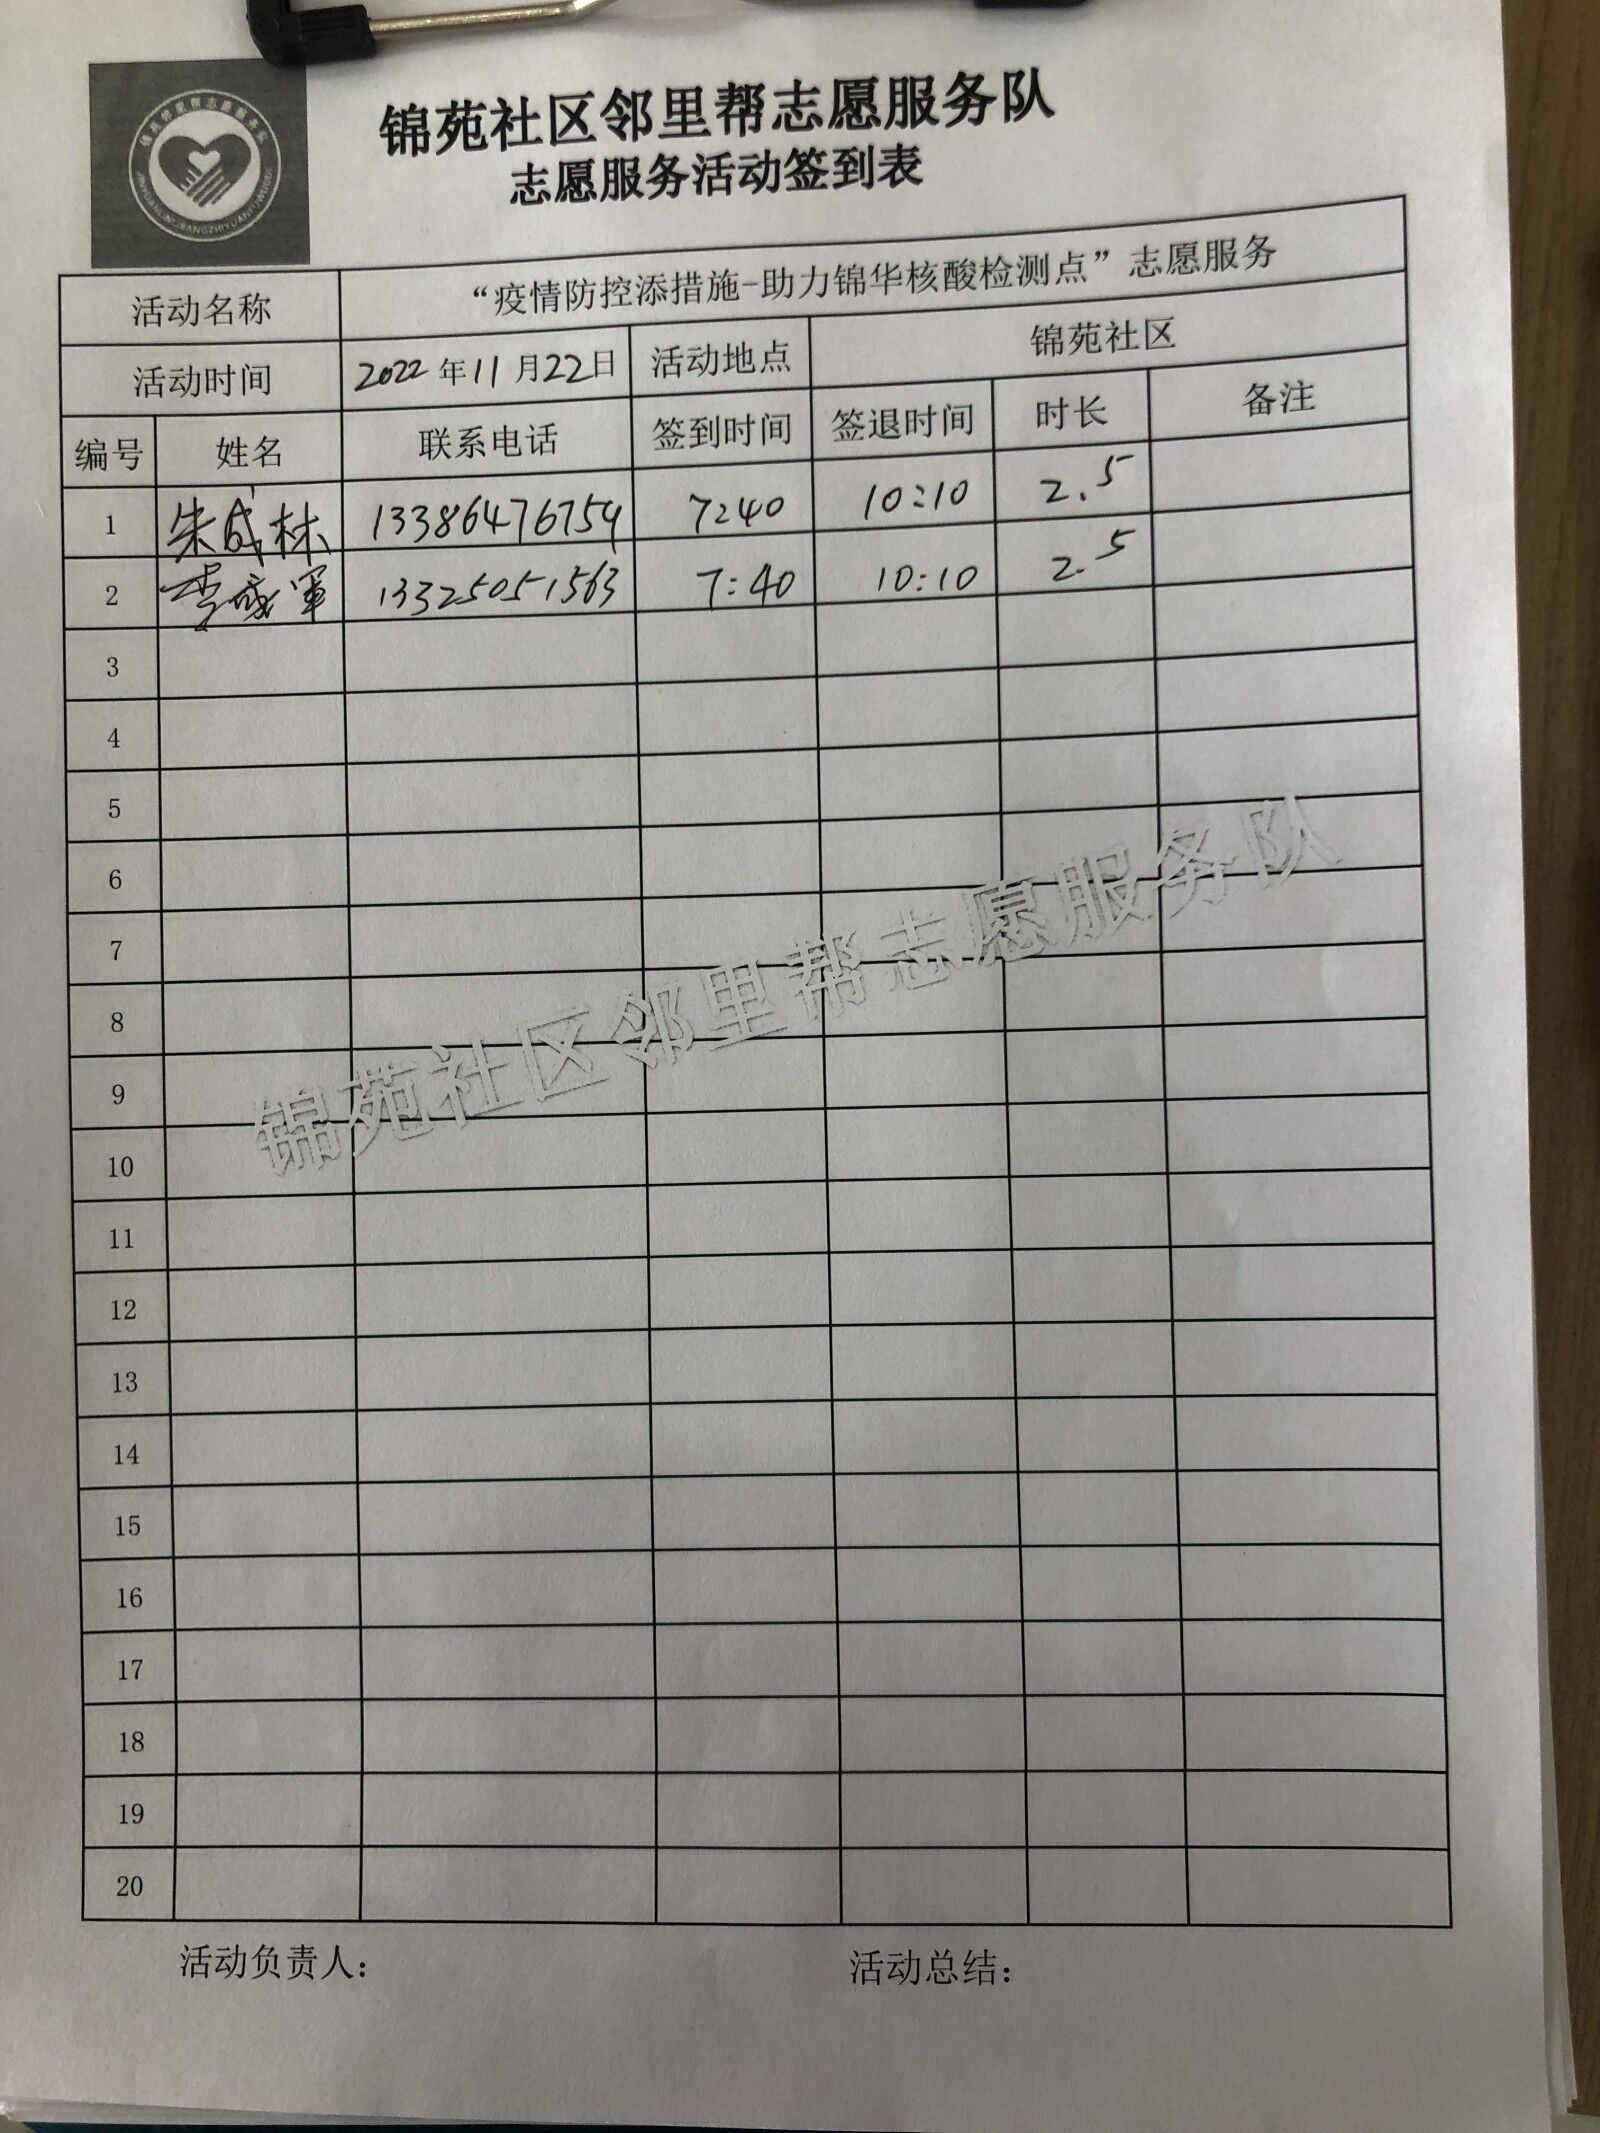 锦苑社区邻里帮志愿服务队
志愿服务活动签到表
活动名称 “疫情防控添措施-助力锦华核酸检测点”志愿服务
活动时间 2022年11月22日 活动地点 锦苑社区
编号 姓名 联系电话 签到时间 签退时间 时长 备注
1 朱成林 13386476759 7:40 10:10 2.5
2 李 軍 13325051563 7:40 10:10 2.5
3
4
5
6
7
8
9
10
11
12
13
14
15
16
17
18
19
20
锦苑社区邻里帮志愿服务队
活动负责人: 活动总结: